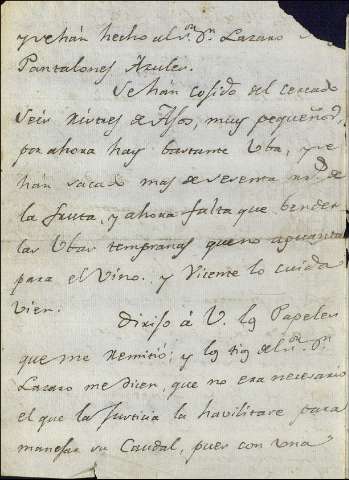 y se hán hecho al Sr. Dn. Lazaro
Pantalones Azules.
Se hán cosido del cercado
Seis ristres de Ajos, muy pequeños,
por ahora hay bastante Uba, y se
hán sacado mas de sesenta rs. de
la fruta, y ahora falta que bender
las Ubas tempranas que no aguanta
para el Vino. y Vicente lo cuida
vien.
Dirijo á V. los Papeles
que me remitió; y los tios del Sr. Dn.
Lazaro me dicen, que no era necesario
el que la Justicia la havilitare para
manejar su Caudal, pues con una